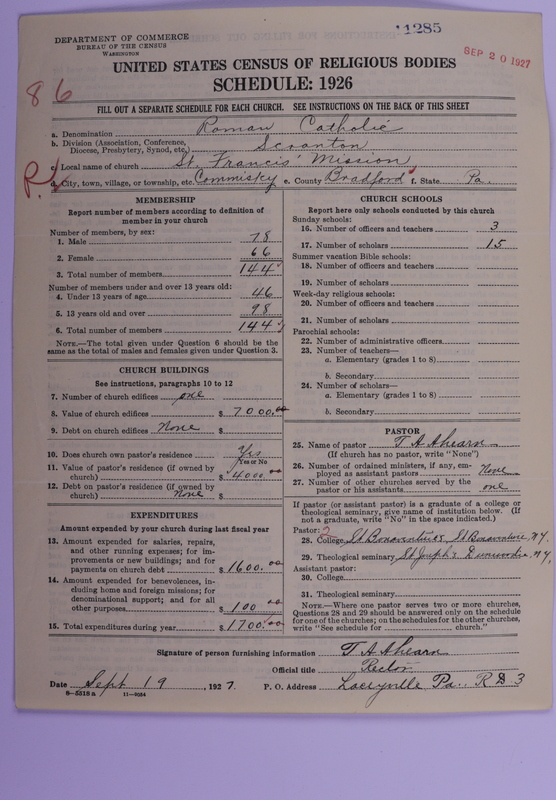 11285
DEPARTMENT OF COMMERCE
BUREAU OF THE CENSUS
WASHINGTON
SEP 20 1927
UNITED STATES CENSUS OF RELIGIOUS BODIES
SCHEDULE: 1926
86
FILL OUT A SEPARATE SCHEDULE FOR EACH CHURCH. SEE INSTRUCTIONS ON THE BACK OF THIS SHEET
a. Denomination Roman Catholic
b. Division (Association, Conference, Diocese, Presbytery, Synod, etc.) Scranton
c. Local name of church St. Francis' Mission
R.
d. City, town, village, or township, etc. Commisky e. County Bradford f. State Pa.
MEMBERSHIP
Report number of members according to definition of member in your church
Number of members, by sex:
1. Male 78
2. Female 66
3. Total number of members 144
Number of members under and over 13 years old:
4. Under 13 years of age 46
5. 13 years old and over 98
6. Total number of members 144
NOTE.—The total given under Question 6 should be the same as the total of males and females given under Question 3.
CHURCH BUILDINGS
See instructions, paragraphs 10 to 12
7. Number of church edifices one
8. Value of church edifices $ 7000.00
9. Debt on church edifices None $
10. Does church own pastor's residence? Yes
Yes or No
11. Value of pastor's residence (if owned by church) $ 4000.00
12. Debt on pastor's residence (if owned by church) None $
EXPENDITURES
Amount expended by your church during last fiscal year
13. Amount expended for salaries, repairs, and other running expenses; for improvements or new buildings; and for payments on church debt $ 1600.00
14. Amount expended for benevolences, including home and foreign missions; for denominational support; and for all other purposes $ 100 00
15. Total expenditures during year $ 1700.00
CHURCH SCHOOLS
Report here only schools conducted by this church
Sunday schools:
16. Number of officers and teachers 3
17. Number of scholars 15
Summer vacation Bible schools:
18. Number of officers and teachers
19. Number of scholars
Week-day religious schools:
20. Number of officers and teachers
21. Number of scholars
Parochial schools:
22. Number of administrative officers
23. Number of teachers—
a. Elementary (grades 1 to 8)
b. Secondary
24. Number of scholars—
a. Elementary (grades 1 to 8)
b. Secondary
PASTOR
25. Name of pastor T. A. Ahearn
(If church has no pastor, write "None")
26. Number of ordained ministers, if any, employed as assistant pastors None
27. Number of other churches served by the pastor or his assistants one
If pastor (or assistant pastor) is a graduate of a college or theological seminary, give name of institution below. (If not a graduate, write "No" in the space indicated.)
Pastor: 2
28. College St Bonaventures, St Bonaventure, N.Y.
29. Theological seminary St Joseph's Dunwoodie, N.Y,
Assistant pastor:
30. College
31. Theological seminary
NOTE.—Where one pastor serves two or more churches, Questions 28 and 29 should be answered only on the schedule for one of the churches; on the schedules for the other churches, write "See schedule for church."
Signature of person furnishing information T. A Ahearn
Official title Rector
Date Sept 19, 1927. P. O. Address Laceyville Pa. R D 3
8-5818a 11-9034